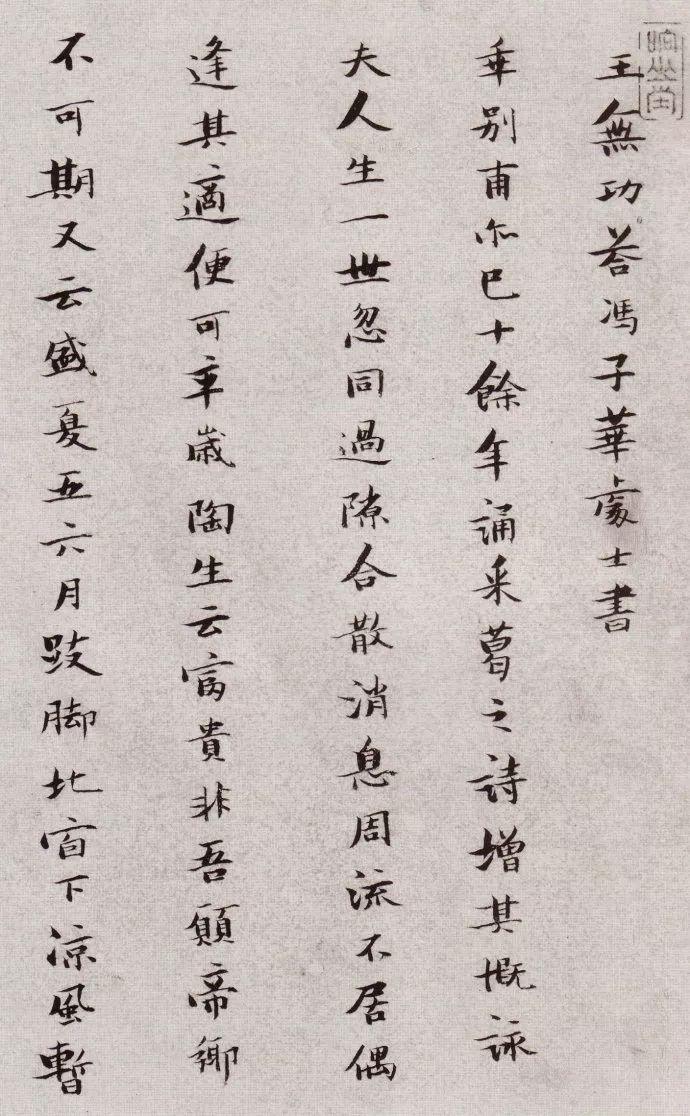 王無功荅馮子華處士書
乖別甫尒已十餘年誦采葛之詩增其慨詠
夫人生一世忽同過隙合散消息周流不居偶
逢其適便可卒歲陶生云富貴非吾願帝鄉
不可期又云盛夏五六月跂脚北窗下涼風暫